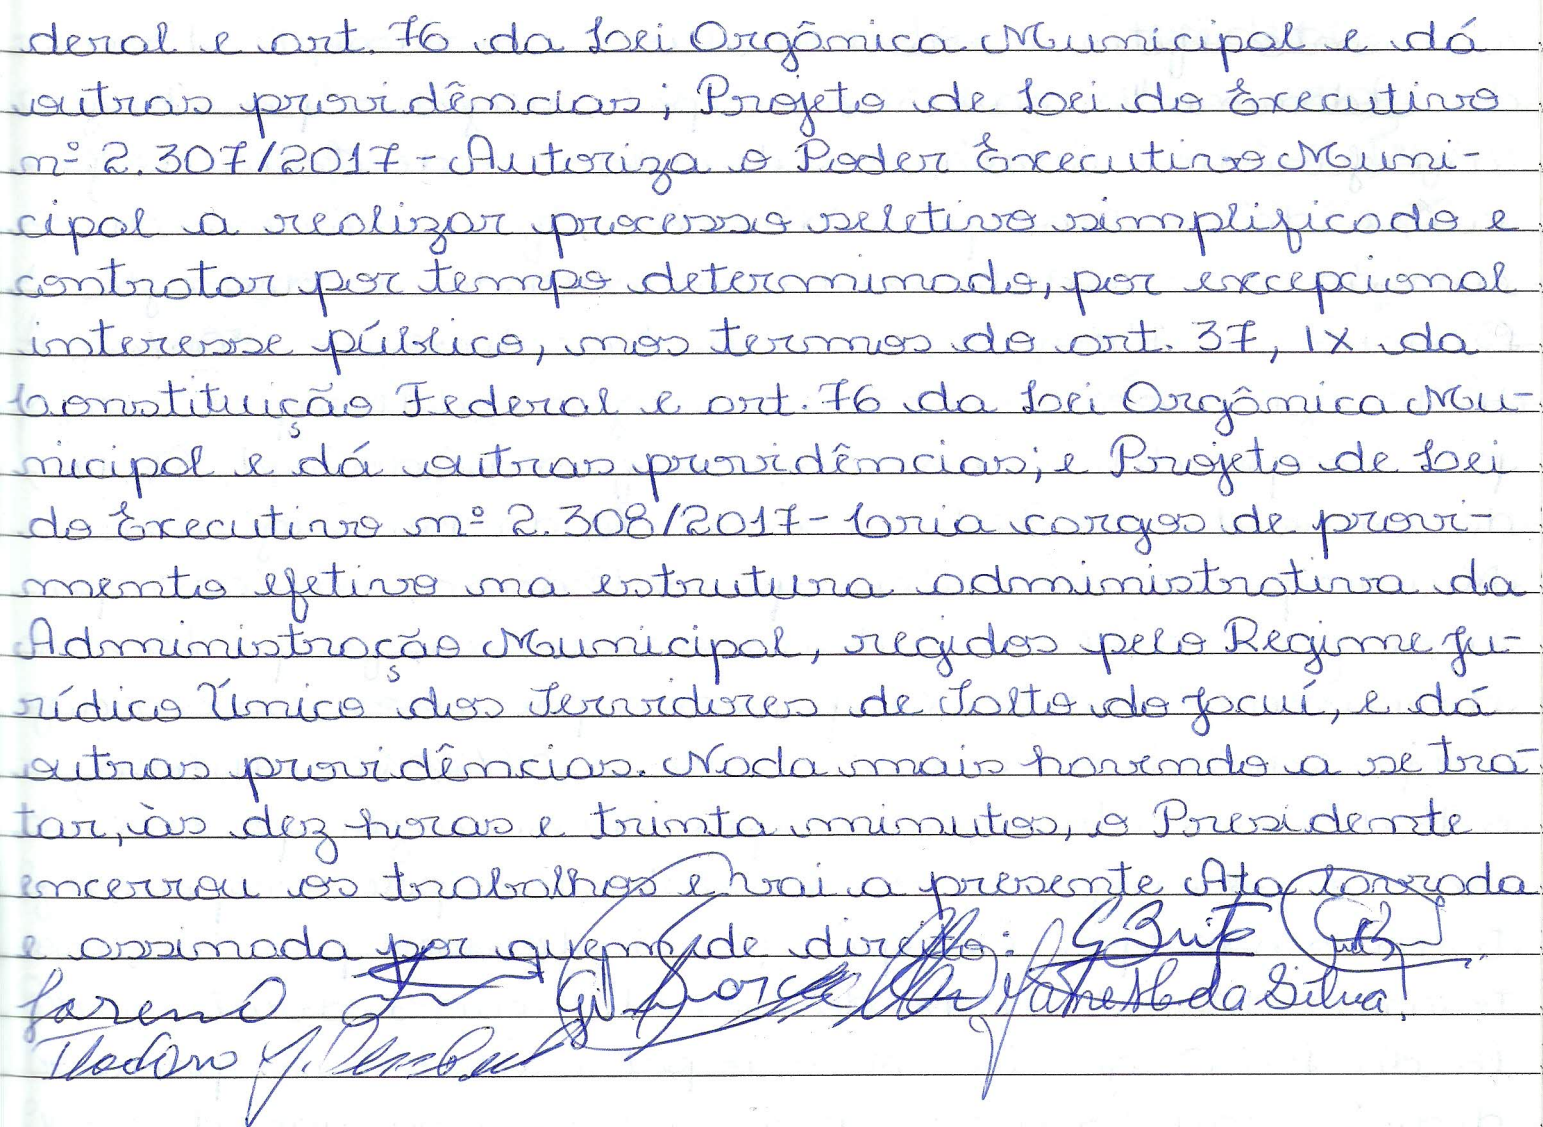 deral e art. 76 da Lei Orgânica Municipal e dá
outras providências; Projeto de Lei do Executivo
nº 2.307/2017 - Autoriza o Poder Executivo Muni-
cipal a realizar processo seletivo simplificado e
contratar por tempo determinado, por excepcional
interesse público, nos termos do art. 37, IX da
Constituição Federal e art. 76 da Lei Orgânica Mu-
nicipal e dá outras providências; e Projeto de Lei
do Executivo nº 2.308/2017 - Cria cargos de provi-
mento efetivo na estrutura administrativa da
Administração Municipal, regidos pelo Regime Ju-
rídico Único dos Servidores de Salto do Jacuí, e dá
outras providências. Nada mais havendo a se tra-
tar, às dez horas e trinta minutos, o Presidente
encerrou os trabalhos e vai a presente Ata lavrada
e assinada por quem de direito:
GBrito
da Silva